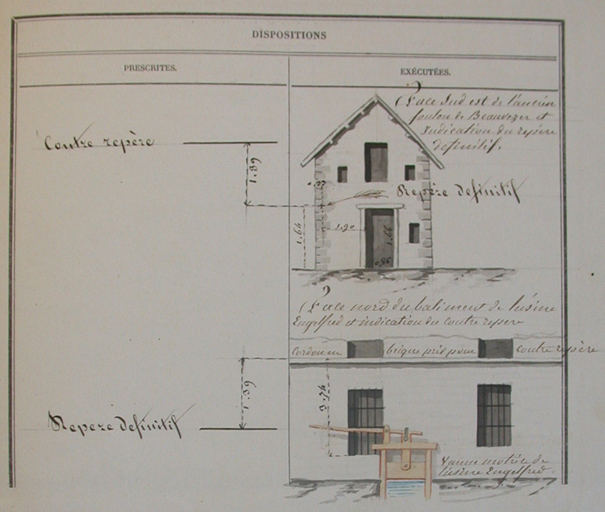 DISPOSITIONS
PRESCRITES.
EXÉCUTÉES.
(Face Sud est de l'ancien
foulon de Beauvezer et
Indication du repère
définitif.
Contre repère
1.39
Repère définitif
1.64
1.90
1.66
0.96
(Face nord du batiment de l'usine
Engelfred et indication du contre repère
Cordon en brique pris pour contre repère
1.39
3.74
Repère définitif
Vanne motrice de
l'usine Engelfred.